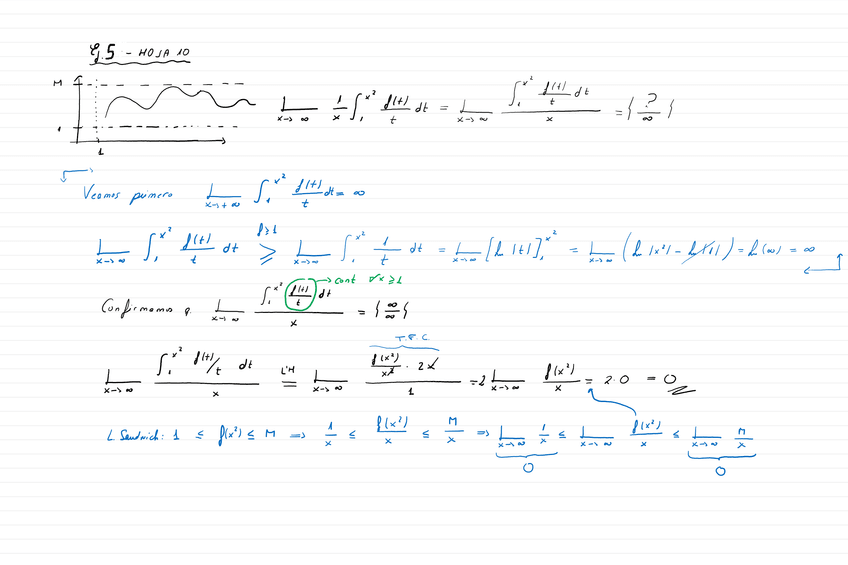 Ej.5 - HOJA 10
M
1
1
L x→∞ 1/x ∫₁^{x²} f(t)/t dt = L x→∞ (∫₁^{x²} f(t)/t dt)/x = { ?/∞ }
Veamos primero L x→+∞ ∫₁^{x²} f(t)/t dt = ∞
f≥1
L x→∞ ∫₁^{x²} f(t)/t dt ≥ L x→∞ ∫₁^{x²} 1/t dt = L x→∞ [ln |t|]₁^{x²} = L x→∞ (ln |x²| - ln |1|) = ln(∞) = ∞
cont ∀x≥1
Confirmamos q. L x→∞ (∫₁^{x²} f(t)/t dt)/x = { ∞/∞ }
T.F.C
L x→∞ (∫₁^{x²} f(t)/t dt)/x =(L'H) L x→∞ (f(x²)/x² · 2x)/1 = 2 L x→∞ f(x²)/x = 2·0 = 0
L Sandwich: 1 ≤ f(x²) ≤ M ⇒ 1/x ≤ f(x²)/x ≤ M/x ⇒ L x→∞ 1/x ≤ L x→∞ f(x²)/x ≤ L x→∞ M/x
0 0